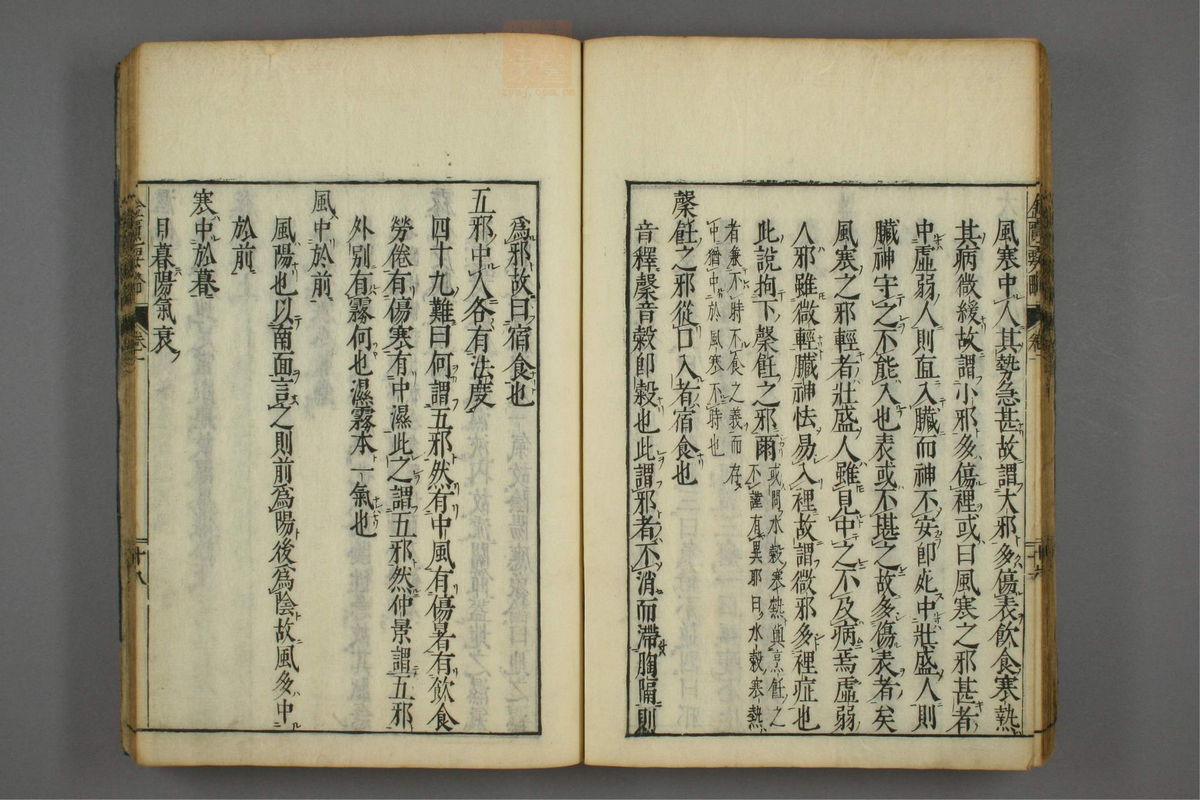 風寒中人其勢急甚故謂大邪多傷表飲食寒熱
其病微緩故謂小邪多傷裡或曰風寒之邪甚者
中虛弱人則直入臟而神不安卽死中壯盛人則
臟神守之不能入也表或不堪之故多傷表者矣
風寒之邪輕者壯盛人雖見中之不及病焉虛弱
人邪雖微輕臟神怯易入裡故謂微邪多裡症也
此說拘下䅽飪之邪爾
或問水穀寒熱與烹飪之
不謹有異邪曰水穀寒熱
者兼不時不食之義而存
中猶中於風寒不時也
䅽飪之邪從口入者宿食也
音釋䅽音穀卽穀也此謂邪者不消而滯胸隔則
為邪故曰宿食也
五邪中人各有法度
四十九難曰何謂五邪然有中風有傷暑有飲食
勞倦有傷寒有中濕此之謂五邪然仲景謂五邪
外別有霧何也濕霧本一氣也
風中於前
風陽也以南面言之則前為陽後為陰故風多中
於前
寒中於暮
日暮陽氣衰
卷一
十八